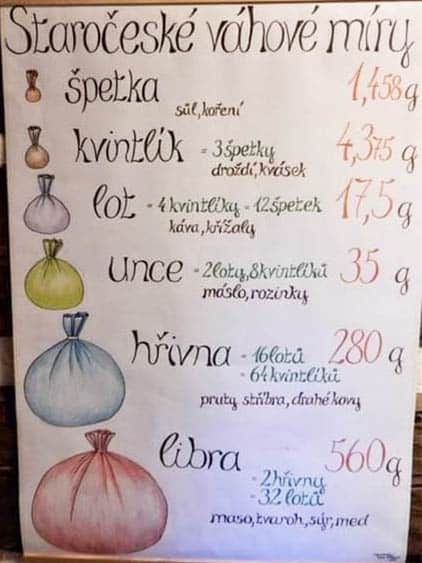 Staročeské váhové míry
špetka 1,458 g
sůl, koření
kvintlík = 3 špetky 4,375 g
droždí, kvásek
lot = 4 kvintlíky = 12 špetek 17,5 g
káva, křížaly
unce = 2 loty, 8 kvintlíků 35 g
máslo, rozinky
hřivna = 16 lotů 280 g
= 64 kvintlíků
pruty stříbra, drahé kovy
libra 560 g
= 2 hřivny
= 32 lotů
maso, tvaroh, sýr, med